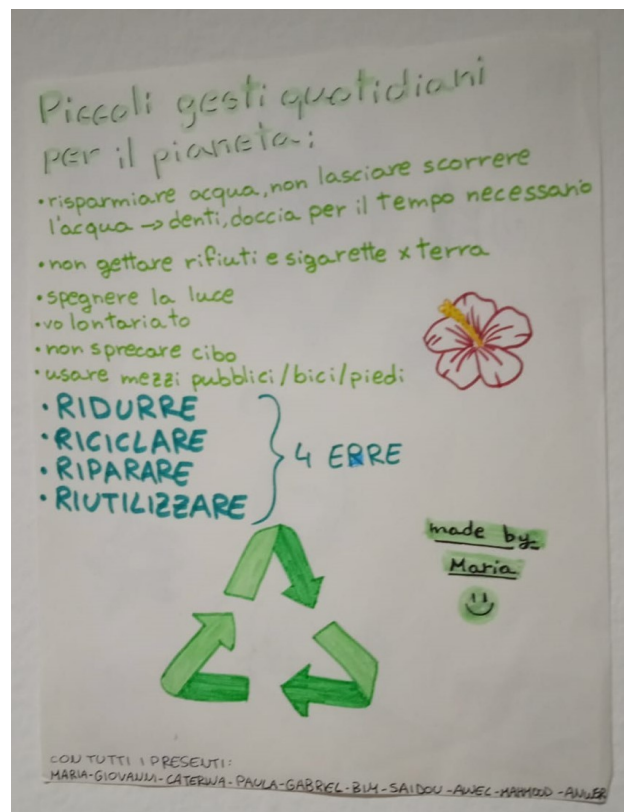 Piccoli gesti quotidiani
per il pianeta:
• risparmiare acqua, non lasciare scorrere
l'acqua → denti, doccia per il tempo necessario
• non gettare rifiuti e sigarette x terra
• spegnere la luce
• volontariato
• non sprecare cibo
• usare mezzi pubblici/bici/piedi
• RIDURRE
• RICICLARE
• RIPARARE
• RIUTILIZZARE
4 ERRE
made by
Maria
CON TUTTI I PRESENTI:
MARIA-GIOVANNI-CATERINA-PAULA-GABRIEL-BIM-SAIDOU-AWEL-MAHMOOD-ANWER